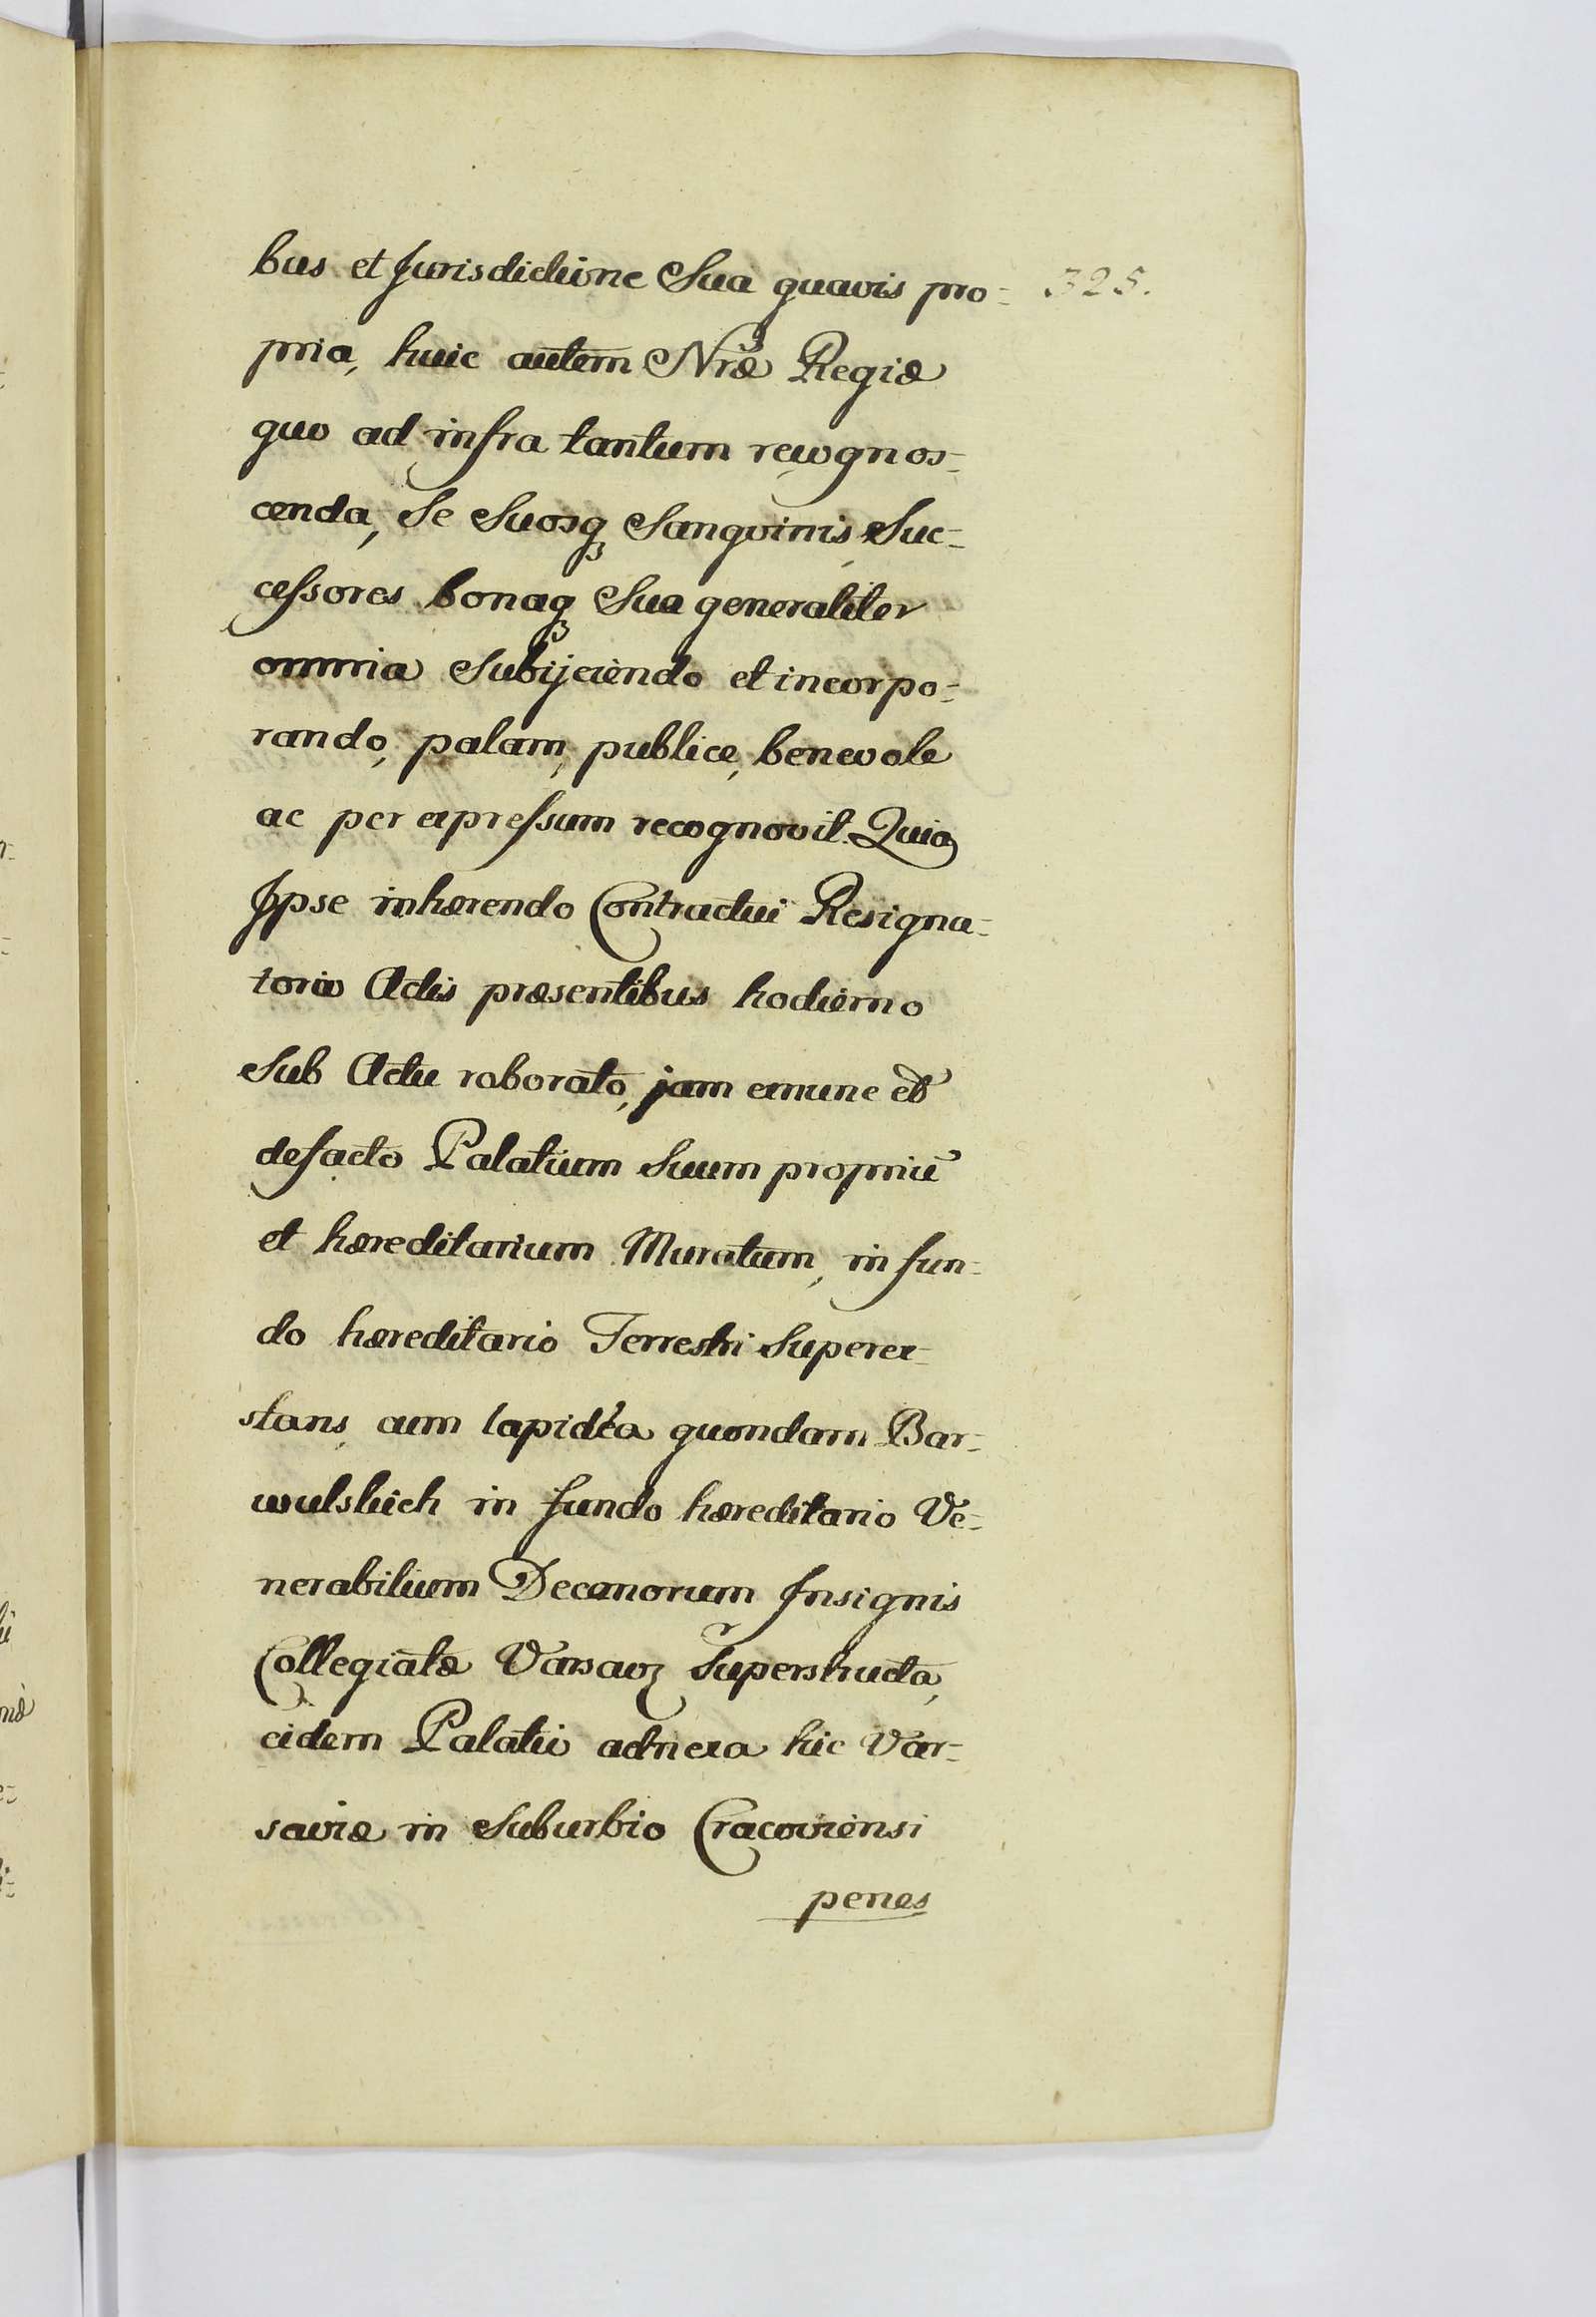 bus et Jurisdictione Sua quavis pro= 325.
pria, huic autem Nræ Regiæ
quo ad infra tantum recognos=
cenda, Se Suosq3 Sangvinis Suc=
cessores bonaq3 Sua generaliter
omnia Subijciendo et incorpo=
rando, palam, publice, benevole
ac per expressum recognovit. Quia
Ipse inhærendo Contractui Resigna=
torio Actis præsentibus hodierno
Sub Actu roborato, jam exnunc et
defacto Palatium Suum propriū
et hæreditarium Muratum, in fun=
do hæreditario Terrestri Superex=
stans, cum lapidea quondam Bar=
wulskich in fundo hæreditario Ve=
nerabilium Decanorum Insignis
Collegiatæ Varsavẽ Superstructa,
eidem Palatio adnexa hic Var=
saviæ in Suburbio Cracoviensi
penes